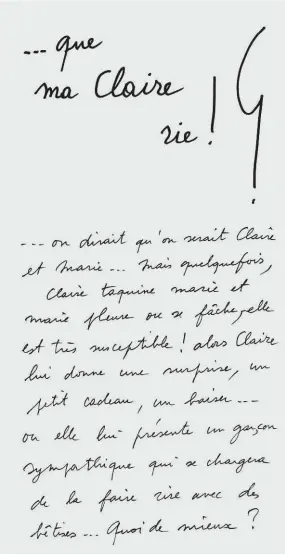 ... que
ma Claire
rie !
... on dirait qu'on serait Claire
et Marie ... mais quelquefois,
Claire taquine marie et
marie pleure ou se fâche, elle
est très susceptible ! alors Claire
lui donne une surprise, un
petit cadeau, un baiser ...
ou elle lui présente un garçon
sympathique qui se chargera
de la faire rire avec des
bêtises ... Quoi de mieux ?